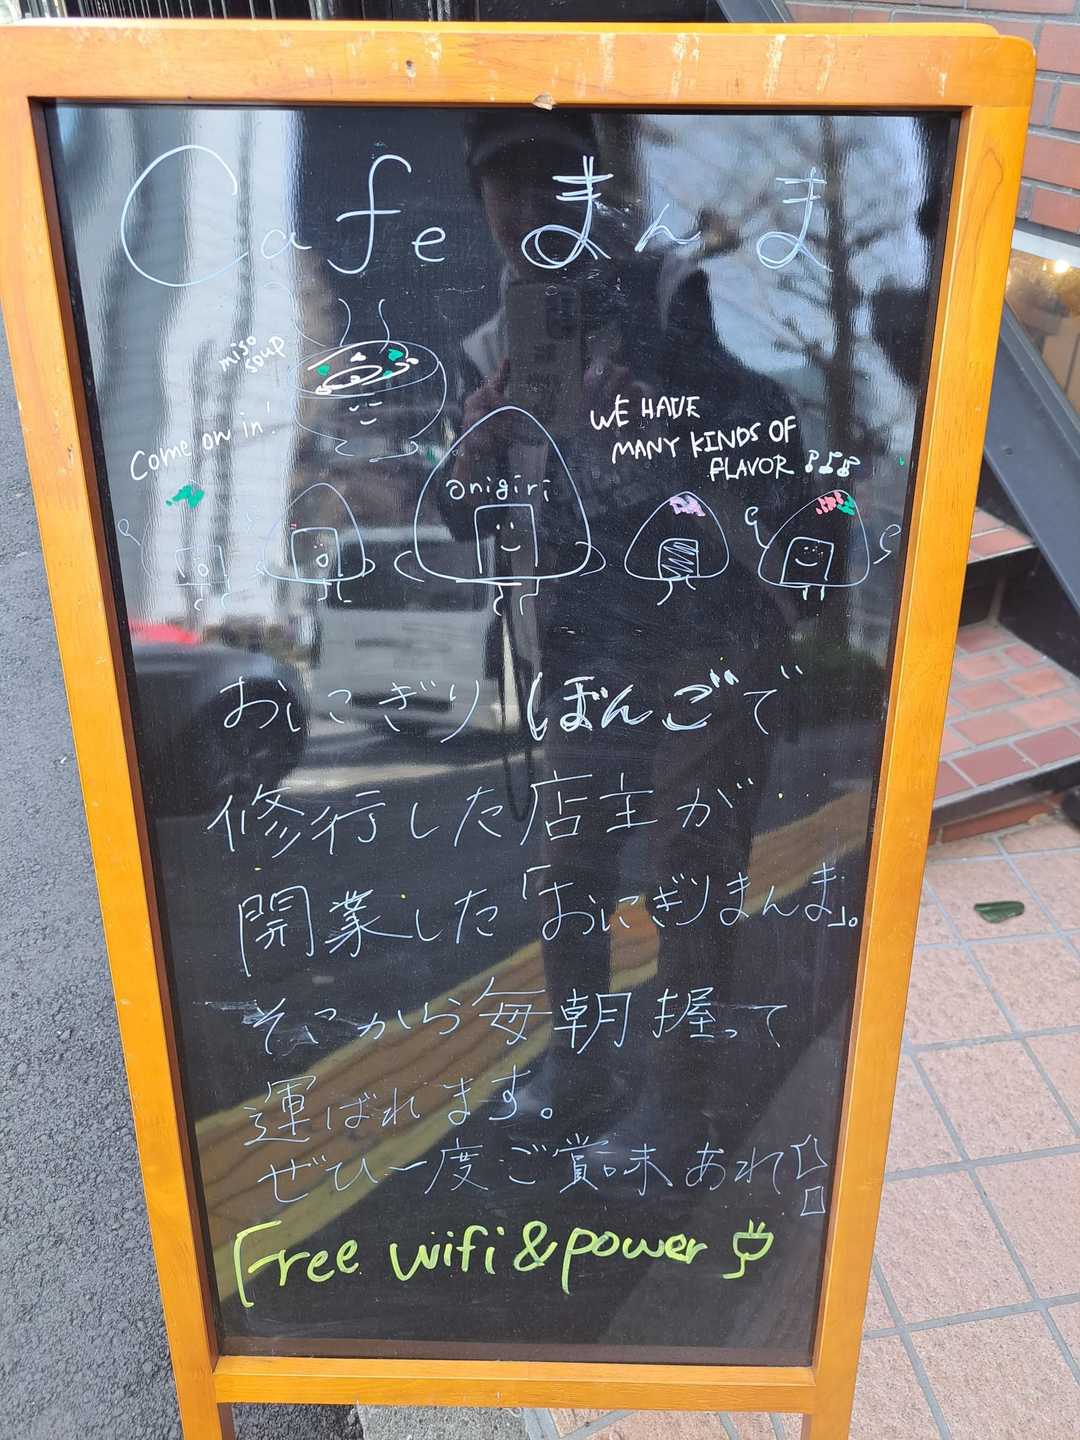 Cafe まんま
miso
soup
Come on in!
onigiri
WE HAVE
MANY KINDS OF
FLAVOR ♪♫♪
おにぎりぼんごで
修行した店主が
開業した「おにぎりまんま」。
そこから毎朝握って
運ばれます。
ぜひ一度ご賞味あれ!
Free wifi & power